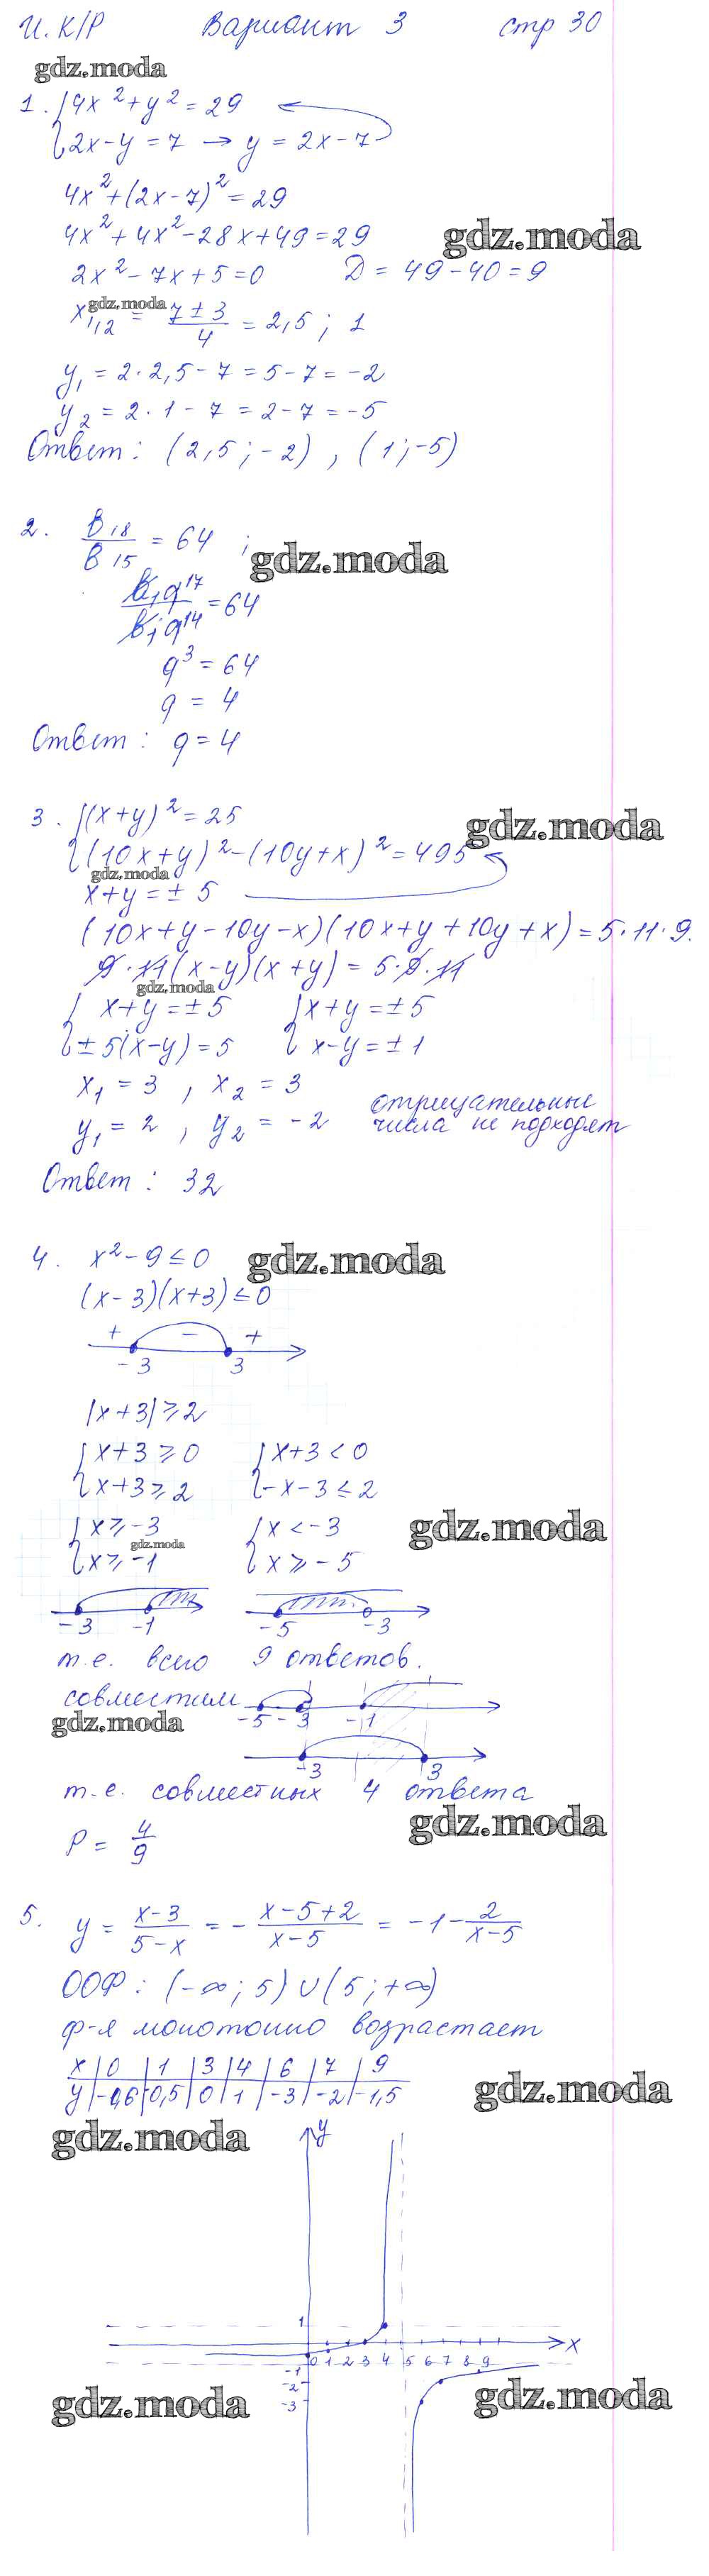 И. К/Р Вариант 3 стр 30
gdz.moda
1. {4x² + y² = 29
{2x - y = 7 → y = 2x - 7
4x² + (2x - 7)² = 29
4x² + 4x² - 28x + 49 = 29
gdz.moda
2x² - 7x + 5 = 0 D = 49 - 40 = 9
gdz.moda
x₁,₂ = (7 ± 3)/4 = 2,5 ; 1
y₁ = 2·2,5 - 7 = 5 - 7 = -2
y₂ = 2·1 - 7 = 2 - 7 = -5
Ответ: (2,5 ; -2) , (1 ; -5)
2. B₁₈/B₁₅ = 64 ;
gdz.moda
b₁q¹⁷/b₁q¹⁴ = 64
q³ = 64
q = 4
Ответ: q = 4
3. {(x + y)² = 25
gdz.moda
{(10x + y)² - (10y + x)² = 495
gdz.moda
x + y = ± 5
(10x + y - 10y - x)(10x + y + 10y + x) = 5·11·9.
9·11(x - y)(x + y) = 5·9·11
gdz.moda
{x + y = ± 5 {x + y = ± 5
{± 5(x - y) = 5 {x - y = ± 1
x₁ = 3 , x₂ = 3 отрицательные
y₁ = 2 , y₂ = -2 числа не подходят
Ответ: 32
4. x² - 9 ≤ 0
gdz.moda
(x - 3)(x + 3) ≤ 0
+ - +
-3 3
|x + 3| ≥ 2
{x + 3 ≥ 0 {x + 3 < 0
{x + 3 ≥ 2 {-x - 3 ≤ 2
gdz.moda
{x ≥ -3 {x < -3
gdz.moda
{x ≥ -1 {x ≥ -5
-3 -1 -5 -3
т.е. всего 9 ответов.
совместим
-5 -3 -1
gdz.moda
-3 3
т.е. совместных 4 ответа
gdz.moda
P = 4/9
5. y = (x - 3)/(5 - x) = - (x - 5 + 2)/(x - 5) = -1 - 2/(x - 5)
ООФ: (-∞; 5) ∪ (5; +∞)
ф-я монотонно возрастает
x | 0 | 1 | 3 | 4 | 6 | 7 | 9
y | -0,6 | -0,5 | 0 | 1 | -3 | -2 | -1,5
gdz.moda
gdz.moda
y
1
x
0 1 2 3 4 5 6 7 8 9
-1
-2
-3
gdz.moda
gdz.moda